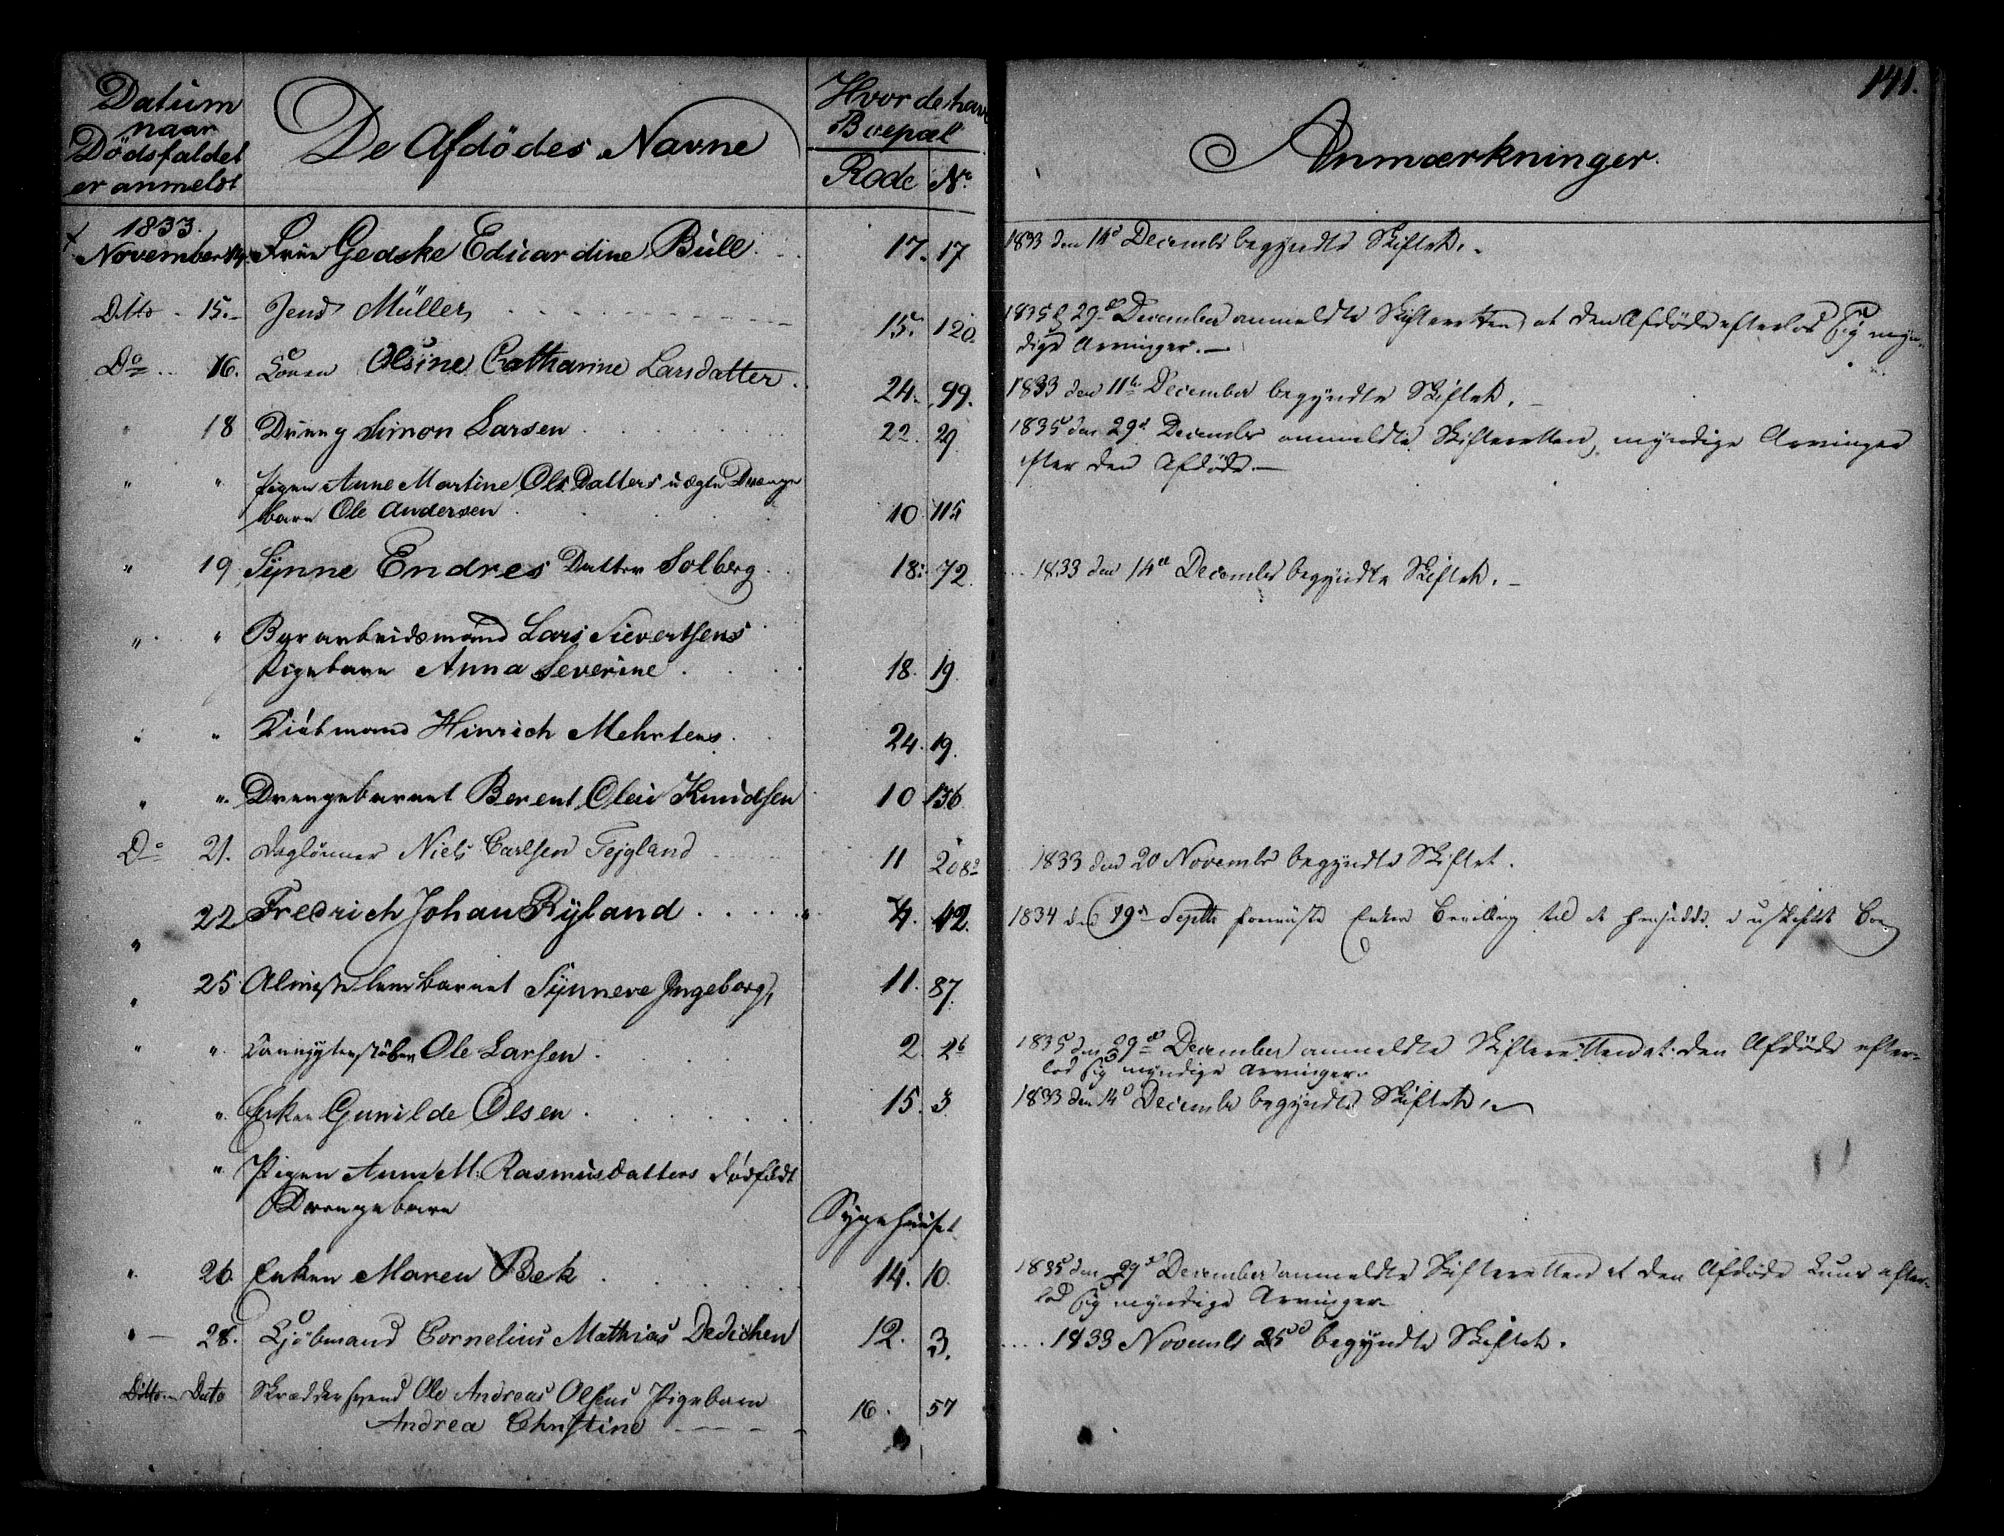 141.
Datum
naar
Dødsfaldet
er anmeldt
De Afdödes Navne
Hvor de have
Boepæl
Rode No
Anmærkninger.
1833.
November 14. Frue Gedske Eduardine Bull 17. 17 1833 den 14d Decembr begyndte Skiftet.
Ditto 15. Jens Müller 15. 120. 1835 d 29d December anmeldte Skifteretten, at den Afdøde efterlod sig myn-
dige Arvinger.
Do 16. Konen Olsine Catharine Larsdatter. 24. 99. 1833 den 11te December begyndte Skiftet.
" 18 Dreng Simon Larsen 22. 29 1835 den 29d December anmeldte Skifteretten, myndige Arvinger
efter den Afdøde.
" " Pigen Anne Martine Ols Datters uægte Drenge
barn Ole Andersen 10 115
" 19 Synne Endres Datter Solberg 18. 72. 1833 den 14d Decembr begyndte Skiftet.
" " Byr arbeidsmand Lars Sievertsens
Pigebarn Anna Severine 18. 19
" " Kiøbmand Hinrich Mehrtens 24. 19.
" " Drengebarnet Berent Olai Knudsen 10 136
Do 21. Daglønner Niels Carlsen Tejgland 11 208a 1833 den 20 Novembr begyndte Skiftet.
" 22 Fredrich Johan Ryland 4. 42. 1834 d 19d Septbr foreviiste Enken Bevilling til at hensidde i uskiftet Boe
" 25 Almisselemsbarnet Synneve Ingeborg, 11. 87.
" " Kandgytersvend Ole Larsen 2. 26 1835 den 29d December anmeldte Skifteretten at den Afdøde efter-
lod sig myndige Arvinger.
" " Enken Gunilde Olsen 15. 3 1833 den 14d December begyndte Skiftet.
" Pigen Anne M. Rasmusdatters dødfødt
Drengebarn Sygehuuset
" 26. Enken Maren Bek 14. 10. 1835 den 29d December anmeldte Skifteretten at den Afdøde Kuns efter-
lod sig myndige Arvinger
" 28. Kjøbmand Cornelius Mathias Dedichen 12. 3. 1833 Novembr 25d begyndte Skiftet.
Ditto Dato Skræddersvend Ole Andreas Olsens Pigebarn
Andrea Christine 16. 57